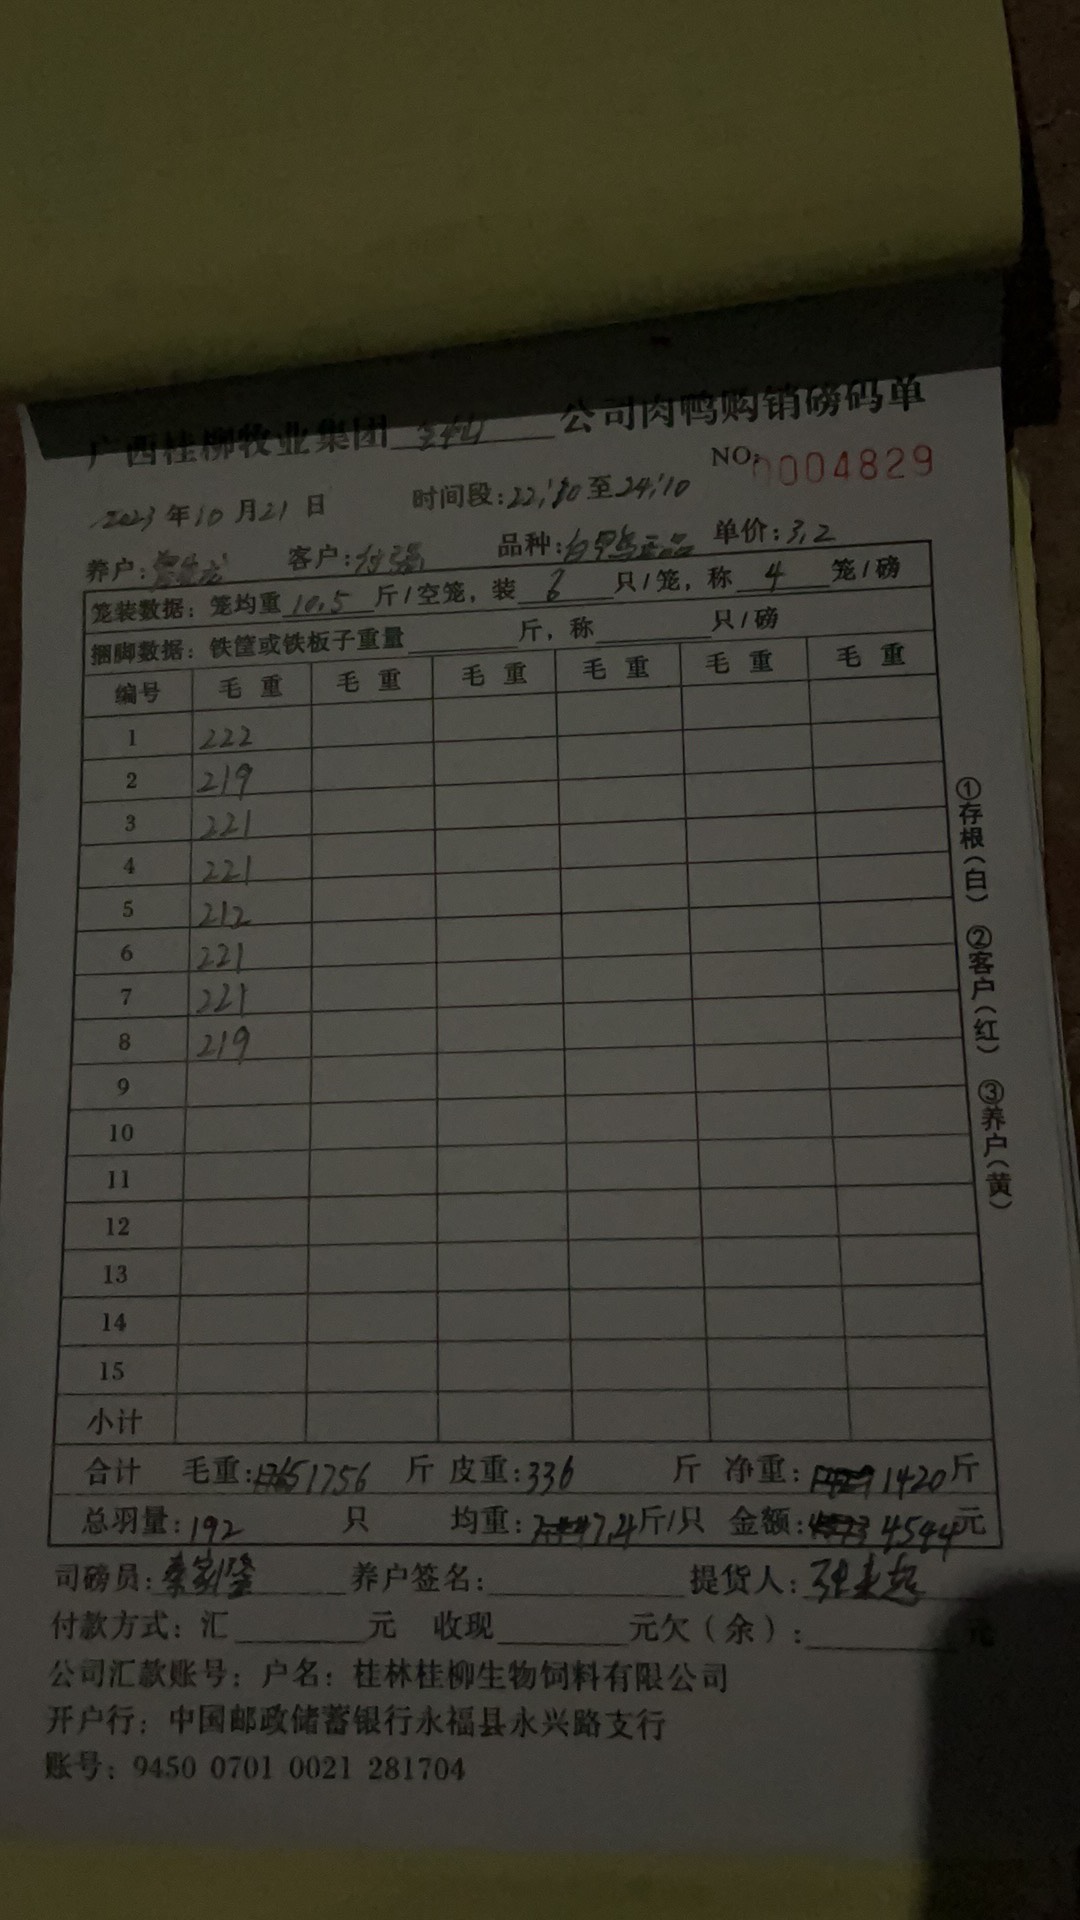 广西桂柳牧业集团 公司肉鸭购销磅码单
NO: 0004829
2023年10月21日 时间段:22:30至24:10
养户: 客户:付强 品种:白甲鸟正品 单价:3.2
笼装数据:笼均重10.5斤/空笼,装6只/笼,称4笼/磅
捆脚数据:铁筐或铁板子重量 斤,称 只/磅
编号 毛重 毛重 毛重 毛重 毛重 毛重
1 222
2 219
3 221
4 221
5 212
6 221
7 221
8 219
9
10
11
12
13
14
15
小计
合计 毛重:1756斤 皮重:336斤 净重:1420斤
总羽量:192只 均重:7.4斤/只 金额:4544元
司磅员: 养户签名: 提货人:
付款方式:汇 元 收现 元欠(余): 元
公司汇款账号:户名:桂林桂柳生物饲料有限公司
开户行:中国邮政储蓄银行永福县永兴路支行
账号:9450 0701 0021 281704
①存根(白) ②客户(红) ③养户(黄)